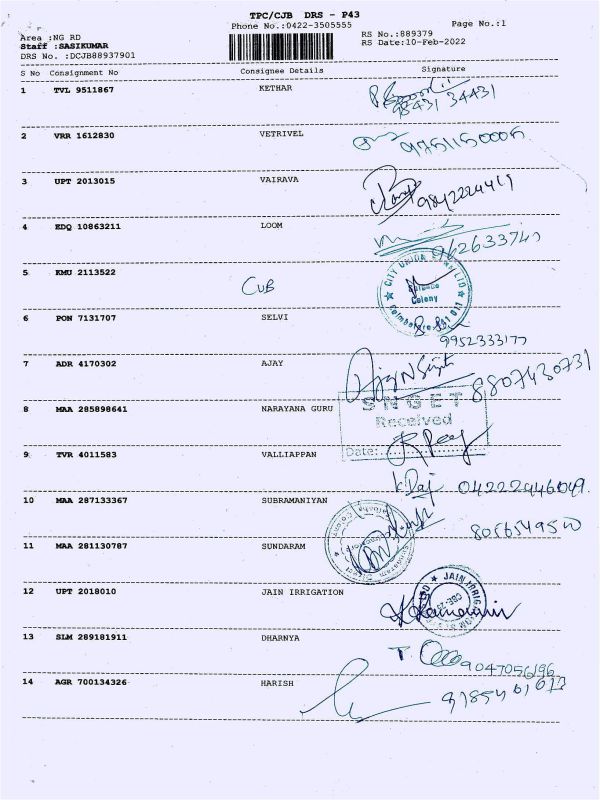 TPC/CJB DRS - P43
Phone No.:0422-3505555 Page No.:1
Area :NG RD RS No.:889379
Staff :SASIKUMAR RS Date:10-Feb-2022
DRS No. :DCJB88937901
S No Consignment No Consignee Details Signature
1 TVL 9511867 KETHAR
98431 34431
2 VRR 1612830 VETRIVEL 9751150006
3 UPT 2013015 VAIRAVA 9842224419
4 EDQ 10863211 LOOM
CITY UNION BANK LTD
5 KMU 2113522 CUB
Colony
6 PON 7131707 SELVI
9952333177
7 ADR 4170302 AJAY 8807430731
SNGET
8 MAA 285898641 NARAYANA GURU Received
Date:
9 TVR 4011583 VALLIAPPAN
K Raj 04222446049
10 MAA 287133367 SUBRAMANIYAN
11 MAA 281130787 SUNDARAM
12 UPT 2018010 JAIN IRRIGATION JAIN IRRIGATION
13 SLM 289181911 DHARNYA
9047056196
14 AGR 700134326 HARISH